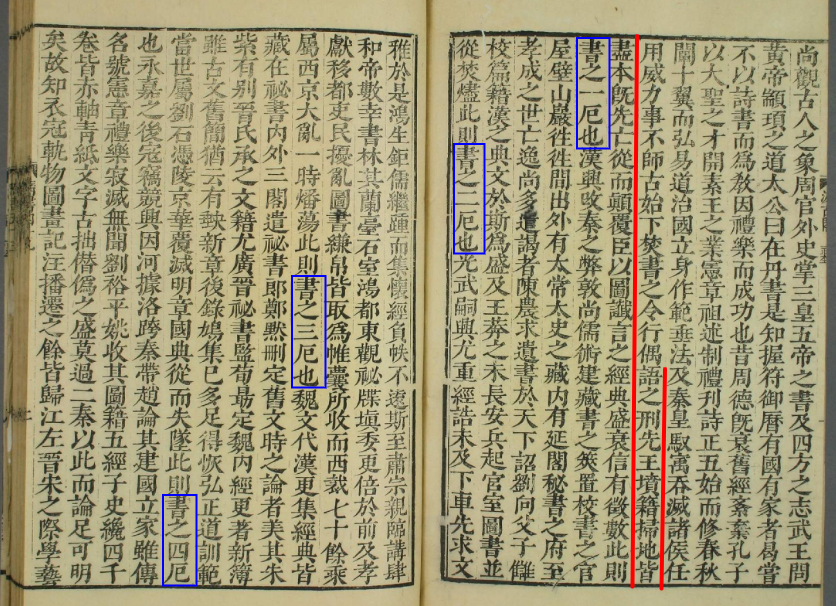 尚觀古人之象周官外史掌三皇五帝之書及四方之志武王問
黃帝顓頊之道太公曰在丹書是知握符御曆有國有家者曷嘗
不以詩書而爲敎因禮樂而成功也昔周德旣衰舊經紊棄孔子
以大聖之才開素王之業憲章祖述制禮刊詩正五始而修春秋
闡十翼而弘易道治國立身作範垂法及秦皇馭㝢吞滅諸侯任
用威力事不師古始下焚書之令行偶語之刑先王墳籍掃地皆
盡本旣先亡從而顚覆臣以圖讖言之經典盛衰信有徵數此則
書之一厄也漢興攺秦之弊敦尚儒術建藏書之筴置校書之官
屋壁山巖往往間出外有太常太史之藏內有延閣秘書之府至
孝成之世亡逸尚多遣謁者陳農求遺書於天下詔劉向父子讎
校篇籍漢之典文於斯爲盛及王莽之末長安兵起宮室圖書並
從焚燼此則書之二厄也光武嗣興尤重經誥未及下車先求文
雅於是鴻生鉅儒繼踵而集懷經負帙不遠斯至肅宗親臨講肆
和帝數幸書林其蘭臺石室鴻都東觀秘牒塡委更倍於前及孝
獻移都吏民擾亂圖書縑帛皆取爲帷囊所收而西裁七十餘乘
屬西京大亂一時燔蕩此則書之三厄也魏文代漢更集經典皆
藏在秘書內外三閣遣秘書郎鄭默刪定舊文時之論者美其朱
紫有別晉氏承之文籍尤廣晉秘書監荀勗定魏內經更著新簿
雖古文舊簡猶云有缺新章後錄鳩集已多足得恢弘正道訓範
當世屬劉石憑陵京華覆滅明章國典從而失墜此則書之四厄
也永嘉之後寇竊競興因河據洛跨秦帶趙論其建國立家雖傳
名號憲章禮樂寂滅無聞劉裕平姚收其圖籍五經子史纔四千
卷皆赤軸靑紙文字古拙僭僞之盛莫過二秦以此而論足可明
矣故知衣冠軌物圖畫記注播遷之餘皆歸江左晉宋之際學藝